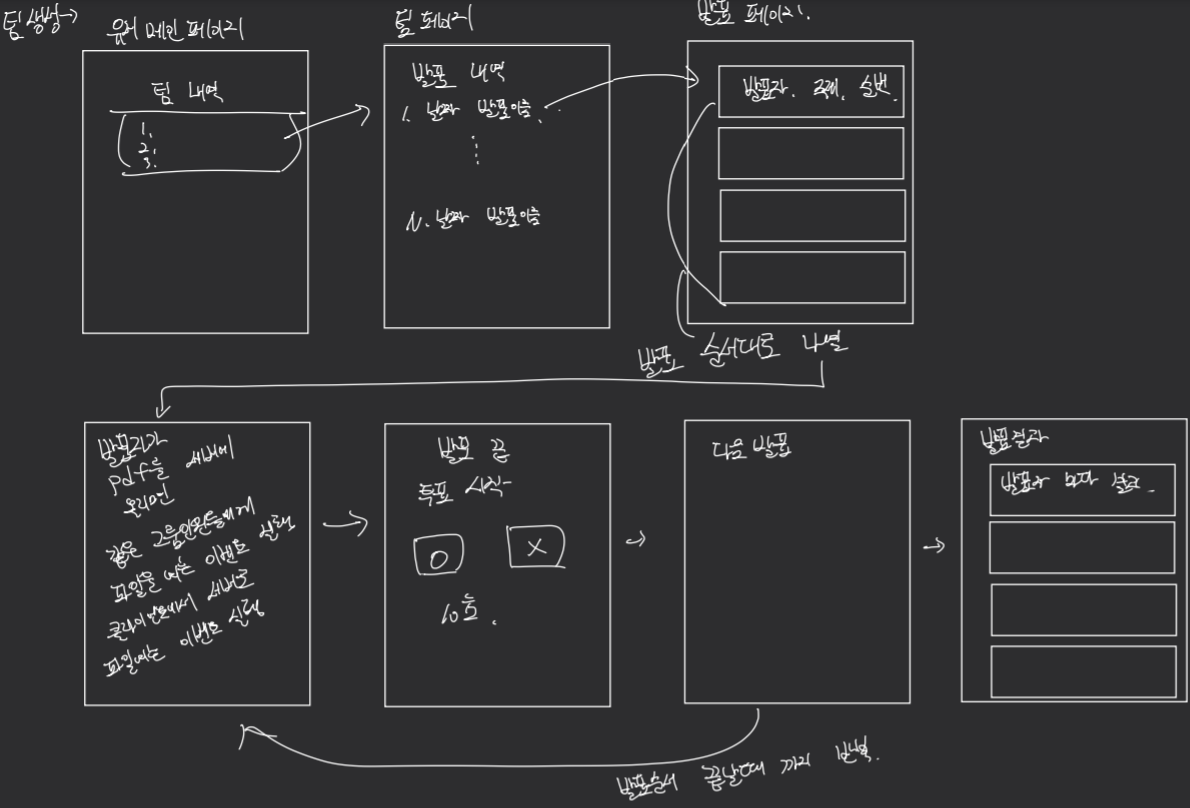 팀 생성→
유저 메인 페이지
팀 내역
1.
2.
3.
팀 페이지
발표 내역
1. 날짜 발표이름
N. 날짜 발표이름
발표 페이지.
발표자. 주제. 순번.
발표 순서대로 나열
발표자가
pdf를 서버에
올리면
같은 그룹인원들에게
파일을 여는 이벤트 실행
클라이언트에서 서버로
파일여는 이벤트 실행
발표 끝
투표 시작
O X
10초.
다음 발표
발표결과
발표자
발표순서 끝날때 까지 반복.